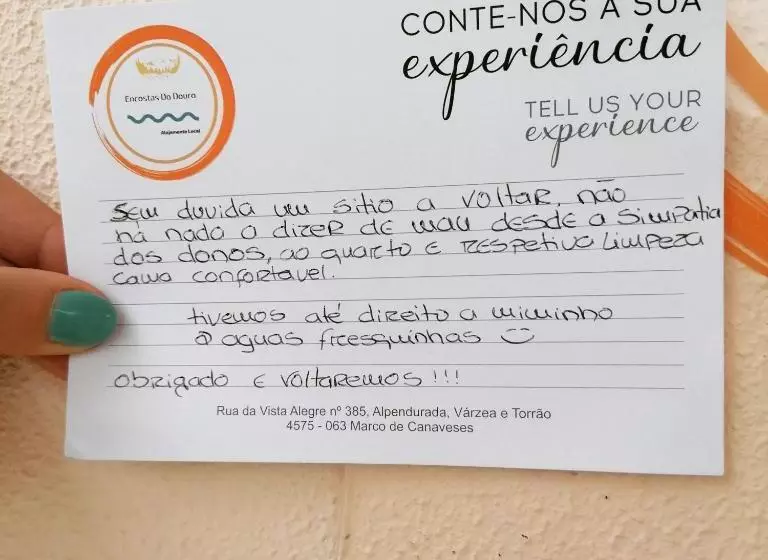 CONTE-NOS A SUA
experiência
TELL US YOUR
experience
Encostas Do Douro
Alojamento Local
Sem duvida um sitio a voltar, não
há nada a dizer de mau desde a simpatia
dos donos, ao quarto e respetiva limpeza
cama confortavel.
tivemos até direito a miminho
e aguas fresquinhas
obrigado e voltaremos!!!
Rua da Vista Alegre nº 385, Alpendurada, Várzea e Torrão
4575 - 063 Marco de Canaveses